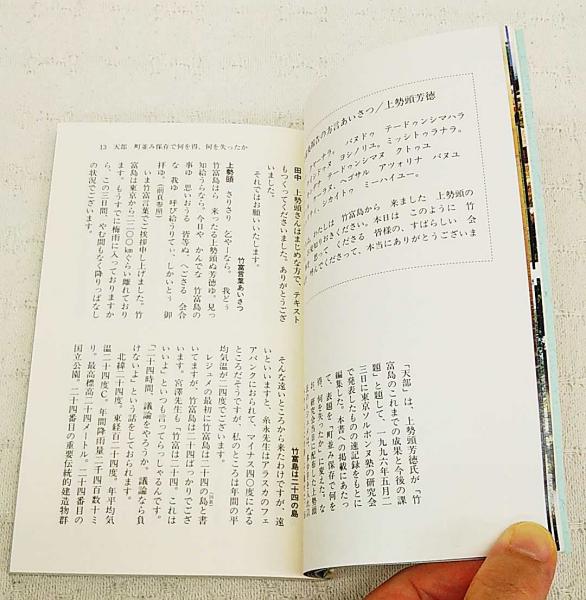 の方言あいさつ/上勢頭芳徳
バヌドゥ テードゥンシマハラ
ヨシノリユ。ミッシトゥラナラ。
テードゥンシマヌ クトゥユ
ヘゴサル アツォリナ バヌユ
シカイトゥ ミーハイユー。
わたしは 竹富島から 来ました 上勢頭の
お見知りおきください。本日は このように 竹
思って くださる 皆様の、すばらしい 会
呼んでくださって、本当にありがとうございま
「天部」は、上勢頭芳徳氏が「竹
富島のこれまでの成果と今後の課
題」と題して、一九九六年五月二
三日に東京ソルボンヌ塾の研究会
で発表したものの速記録をもとに
編集した。本書への掲載にあたっ
て、表題を「町並み保存で何を
得、何を失ったか」に変えた。な
お、研究会当日に配布した上勢頭
13 天部 町並み保存で何を得、何を失ったか
田中 上勢頭さんはまじめな方で、テキスト
もつくってくださいました。ありがとうござ
いました。
それではお願いいたします。
竹富言葉あいさつ
上勢頭 さりさり 乞やーなら。我どぅ
竹富島はら 来ったる上勢頭ぬ芳徳ゆ。見っ
知給うらなら。今日や かんでな 竹富島の
事ゆ 思いおうる 皆等ぬ、へごさる 会合
な 我ゆ 呼び給うりてぃ、しかいとぅ 御
拝ゆ。(前頁参照)
いま竹富言葉でご挨拶申し上げました。竹
富島は、東京から二二〇〇kmぐらい離れており
ます。もうすでに梅雨に入っておりますか
ら、この三日間、やむ間もなく降りっぱなし
の状況でございます。
竹富島は二十四の島
そんな遠いところから来たわけですが、遠
いといいますと、糸永先生はアラスカのフェ
アバンクにおられて、マイナス四〇度になる
ところだそうですが、私のところは年間の平
均気温が二四度でございます。
レジュメの最初に竹富島は二十四の島と書
いてますが、竹富島は二十四ばっかりでござ
います。宮澤先生も「竹富は二十四。これは
いいよ」といつも言ってらっしゃるんです。
「二十四時間、議論をやろうか。議論なら負
けないよ」という話をしておられます。
北緯二十四度。東経百二十四度。年平均気
温二十四度C。年間降雨量二千四百数十ミ
リ。最高標高二十四メートル。二十四番目の
国立公園。二十四番目の重要伝統的建造物群